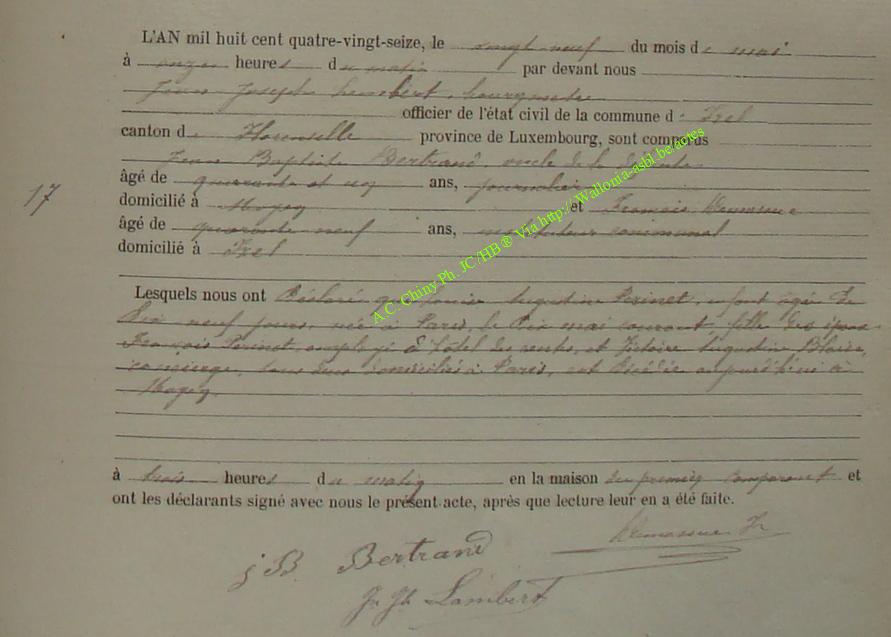 L'AN mil huit cent quatre-vingt-seize, le vingt neuf du mois de mai
à onze heures du matin par devant nous
Jean Joseph Lambert, bourgmestre
officier de l'état civil de la commune d' Izel
canton de Florenville province de Luxembourg, sont comparus
Jean Baptiste Bertrand, oncle de la défunte
âgé de quarante et un ans, journalier
17
domicilié à Moyen et François
âgé de quarante neuf ans, instituteur communal
domicilié à Izel
Lesquels nous ont déclaré que Louise Augustine Perinet, enfant agée de
dix neuf jours, née à Paris, le dix mai courant, fille des époux
François Perinet, employé à l'hôtel des ventes, et Victoire Augustine
concierge, tous deux domiciliés à Paris, est décédée aujourd'hui à
Moyen
à trois heures du matin en la maison du premier comparant et
ont les déclarants signé avec nous le présent acte, après que lecture leur en a été faite.
J B Bertrand
Jn Jh Lambert
A.C. Chiny Ph. JC/HB® Via http://Wallonia-asbl.be/actes